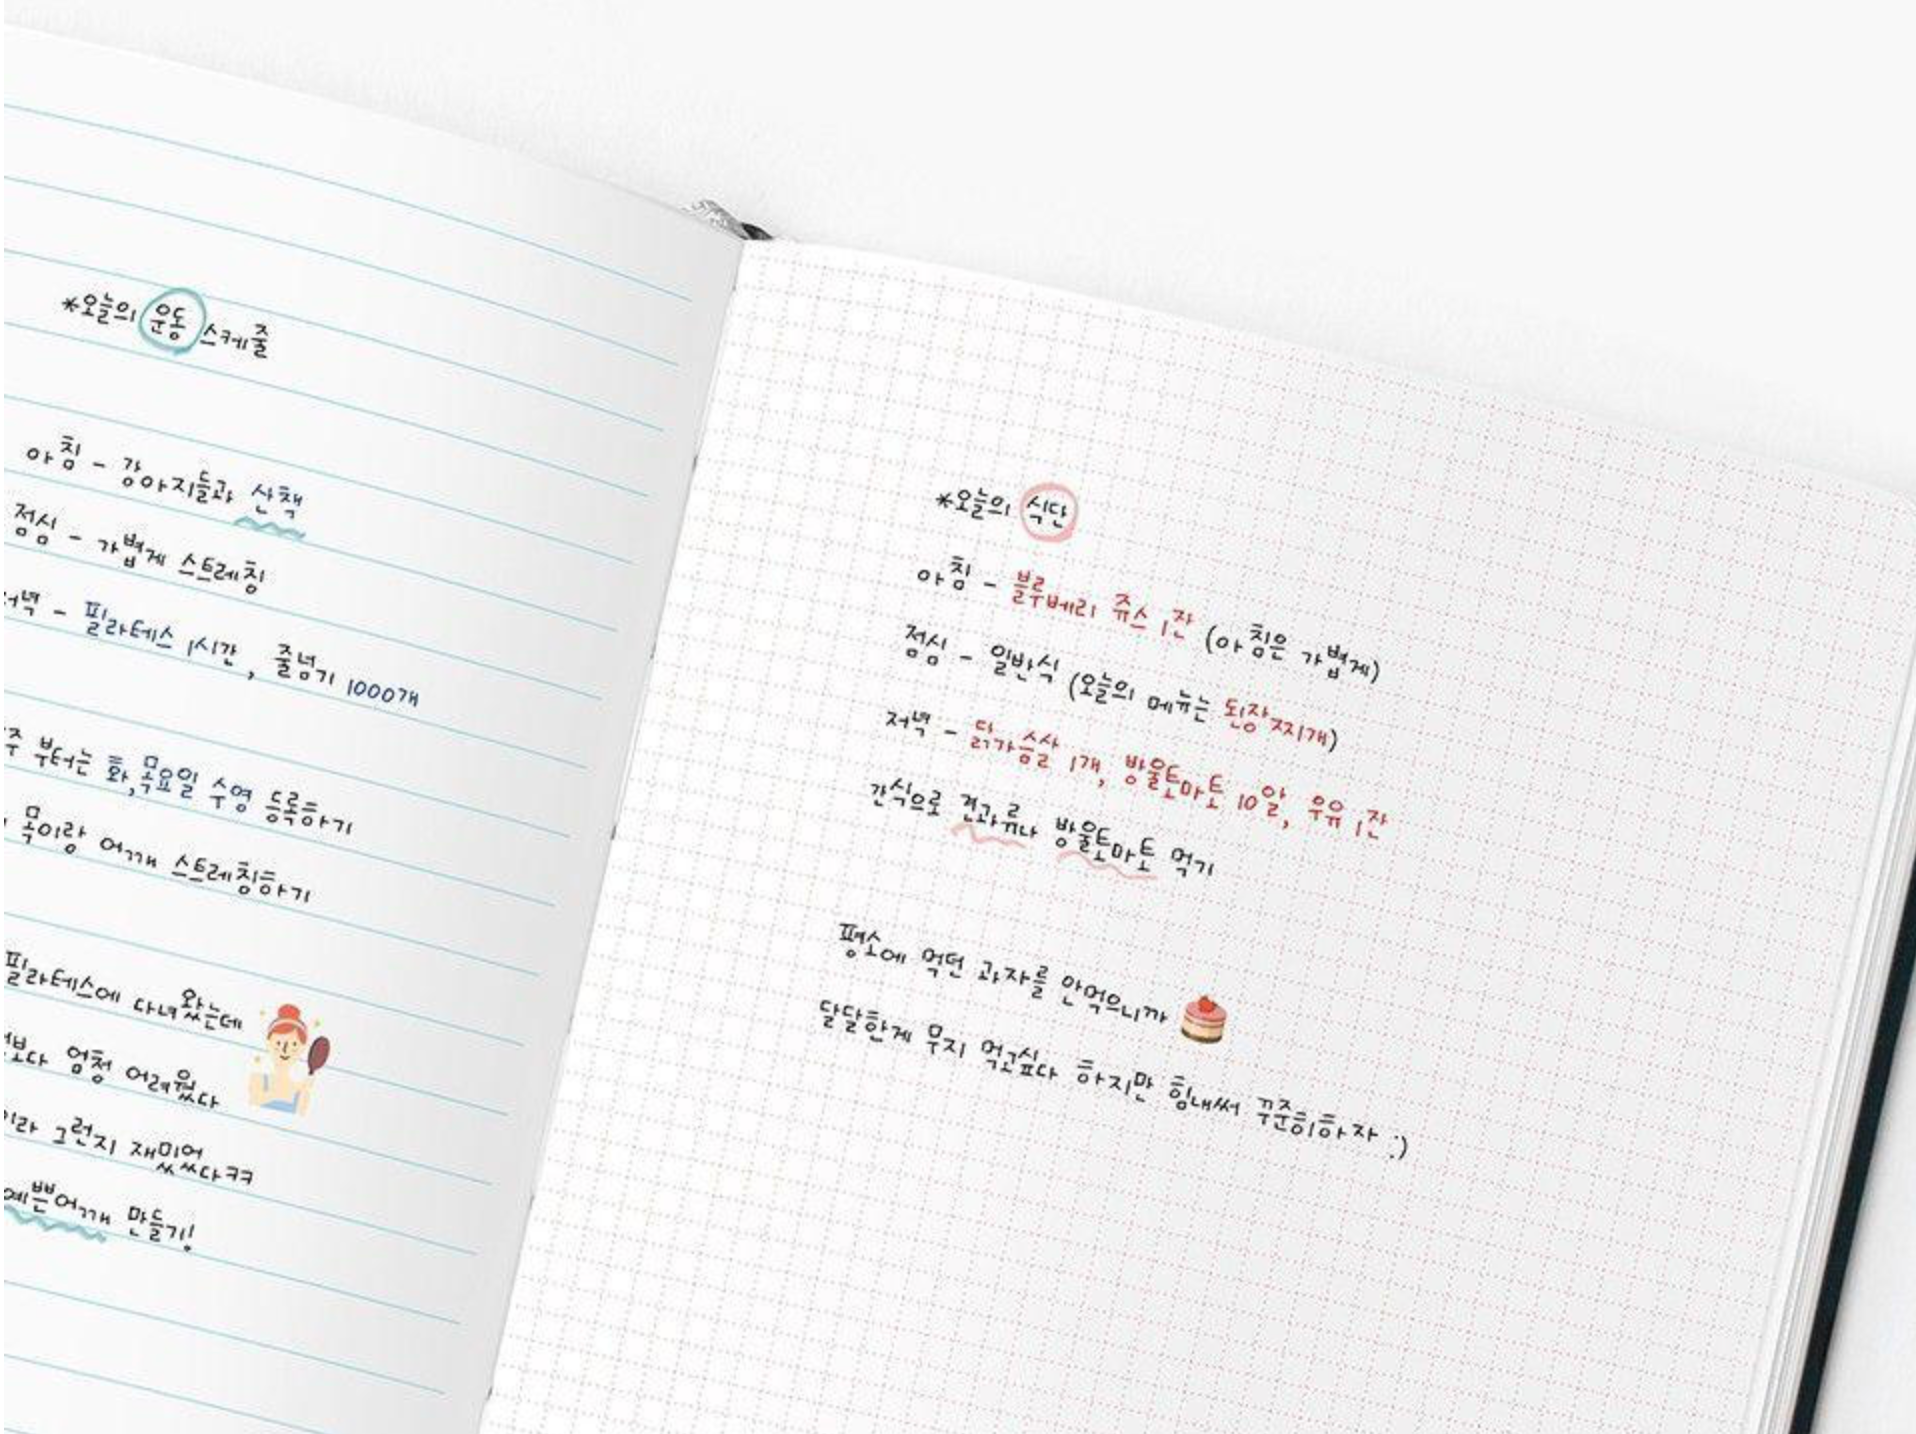 *오늘의 운동 스케줄
아침 - 강아지들과 산책
점심 - 가볍게 스트레칭
저녁 - 필라테스 1시간, 줄넘기 1000개
주 부터는 화,목요일 수영 등록하기
목이랑 어깨 스트레칭하기
필라테스에 다녀왔는데
엄청 어려웠다
그런지 재미있었다ㅋㅋ
예쁜어깨 만들기!
*오늘의 식단
아침 - 블루베리 쥬스 1잔 (아침은 가볍게)
점심 - 일반식 (오늘의 메뉴는 된장찌개)
저녁 - 닭가슴살 1개, 방울토마토 10알, 우유 1잔
간식으로 견과류나 방울토마토 먹기
평소에 먹던 과자를 안먹으니까
달달한게 무지 먹고싶다 하지만 힘내써 꾸준히하자 :)